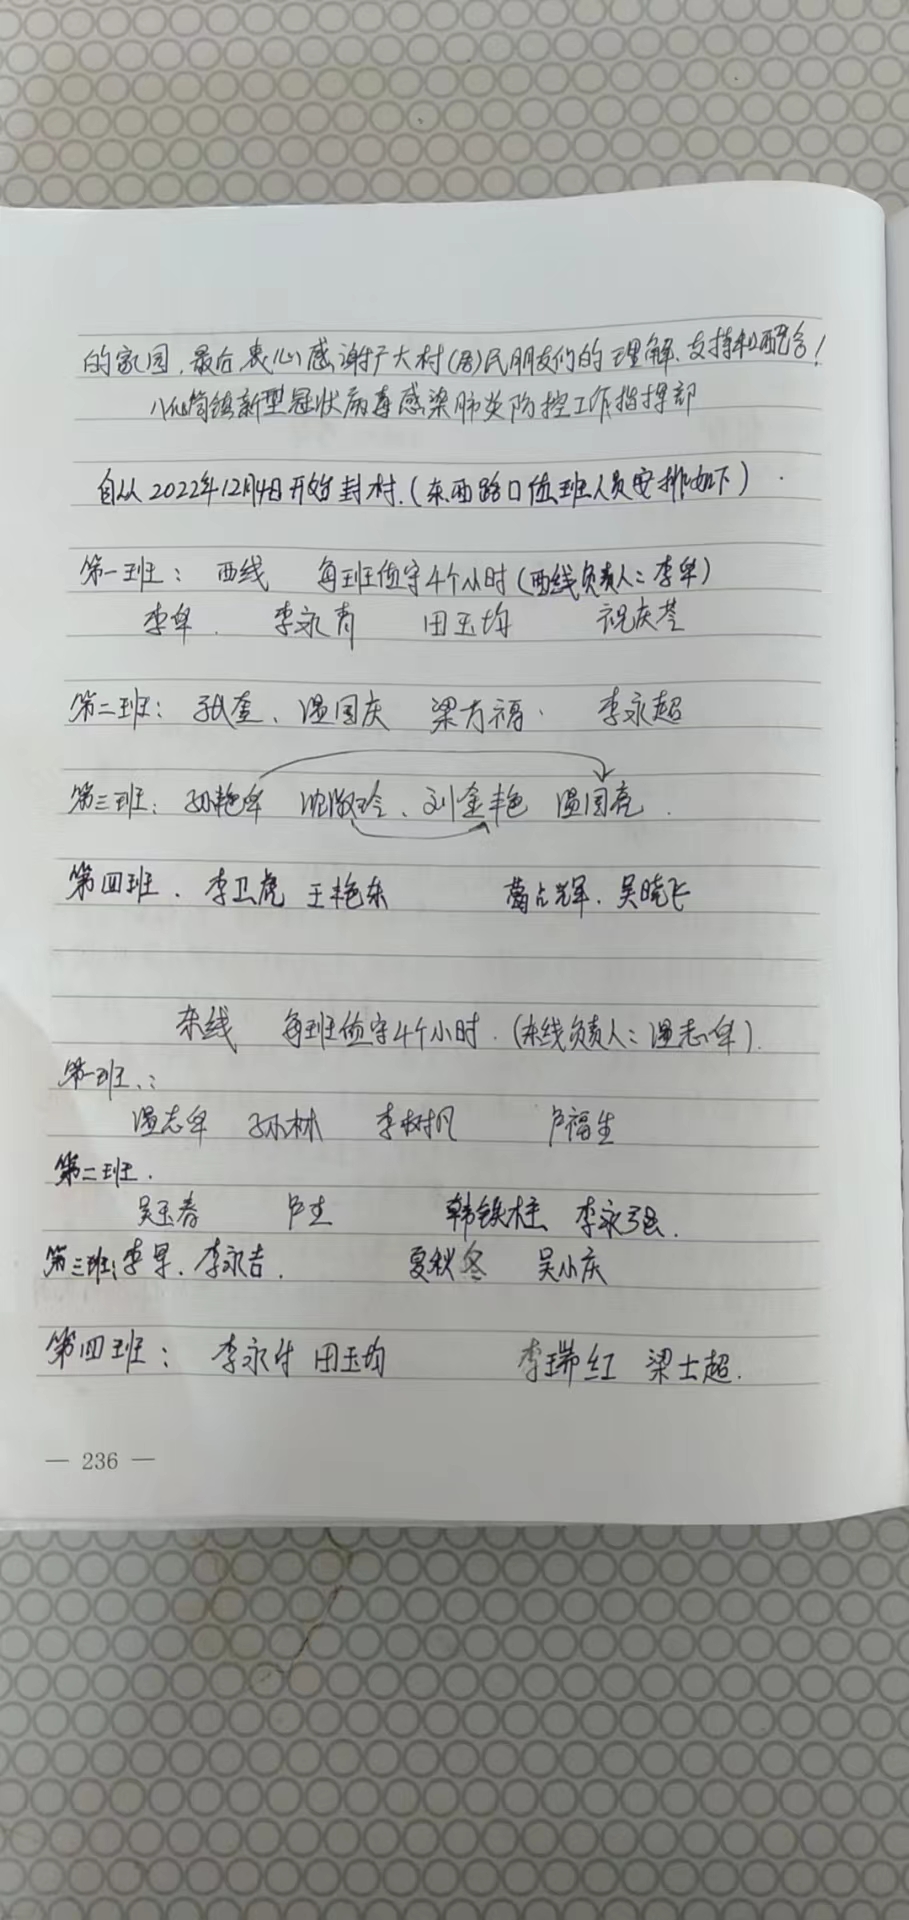 的家园,最后衷心感谢广大村(居)民朋友们的理解、支持和配合!
八仙筒镇新型冠状病毒感染肺炎防控工作指挥部
自从2022年12月4日开始封村.(东西路口值班人员安排如下)
第一班: 西线 每班值守4个小时(西线负责人:李军)
李军. 李永青 田玉均 祝庆
第二班: 张奎、温国庆 梁万福. 李永超
第三班: 孙艳军 沈淑玲、刘金艳 温国亮.
第四班. 李卫虎 王艳东 葛占辉. 吴晓飞
东线 每班值守4个小时.(东线负责人:温志军).
第一班.:
温志军 孙林 李树凡 卢福生
第二班.
吴玉春 卢生 韩铁柱 李永强.
第三班: 李早. 李永吉. 夏秋冬 吴小庆
第四班: 李永付 田玉均 李瑞红 梁士超.
— 236 —